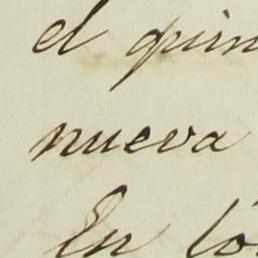 el quin
nueva
En lo